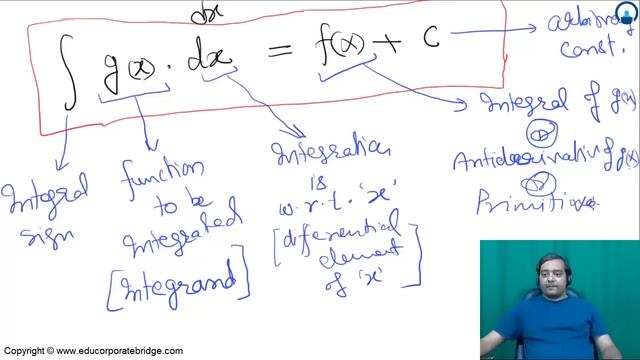 dx
∫ g(x) . dx = f(x) + C
arbitrary
const.
Integral of g(x)
or
Antiderivative of g(x)
or
Primitive
Integral
sign
function
to be
Integrated
[Integrand]
Integration
is
w.r.t. 'x'
[differential
element
of 'x']
Copyright © www.educorporatebridge.com